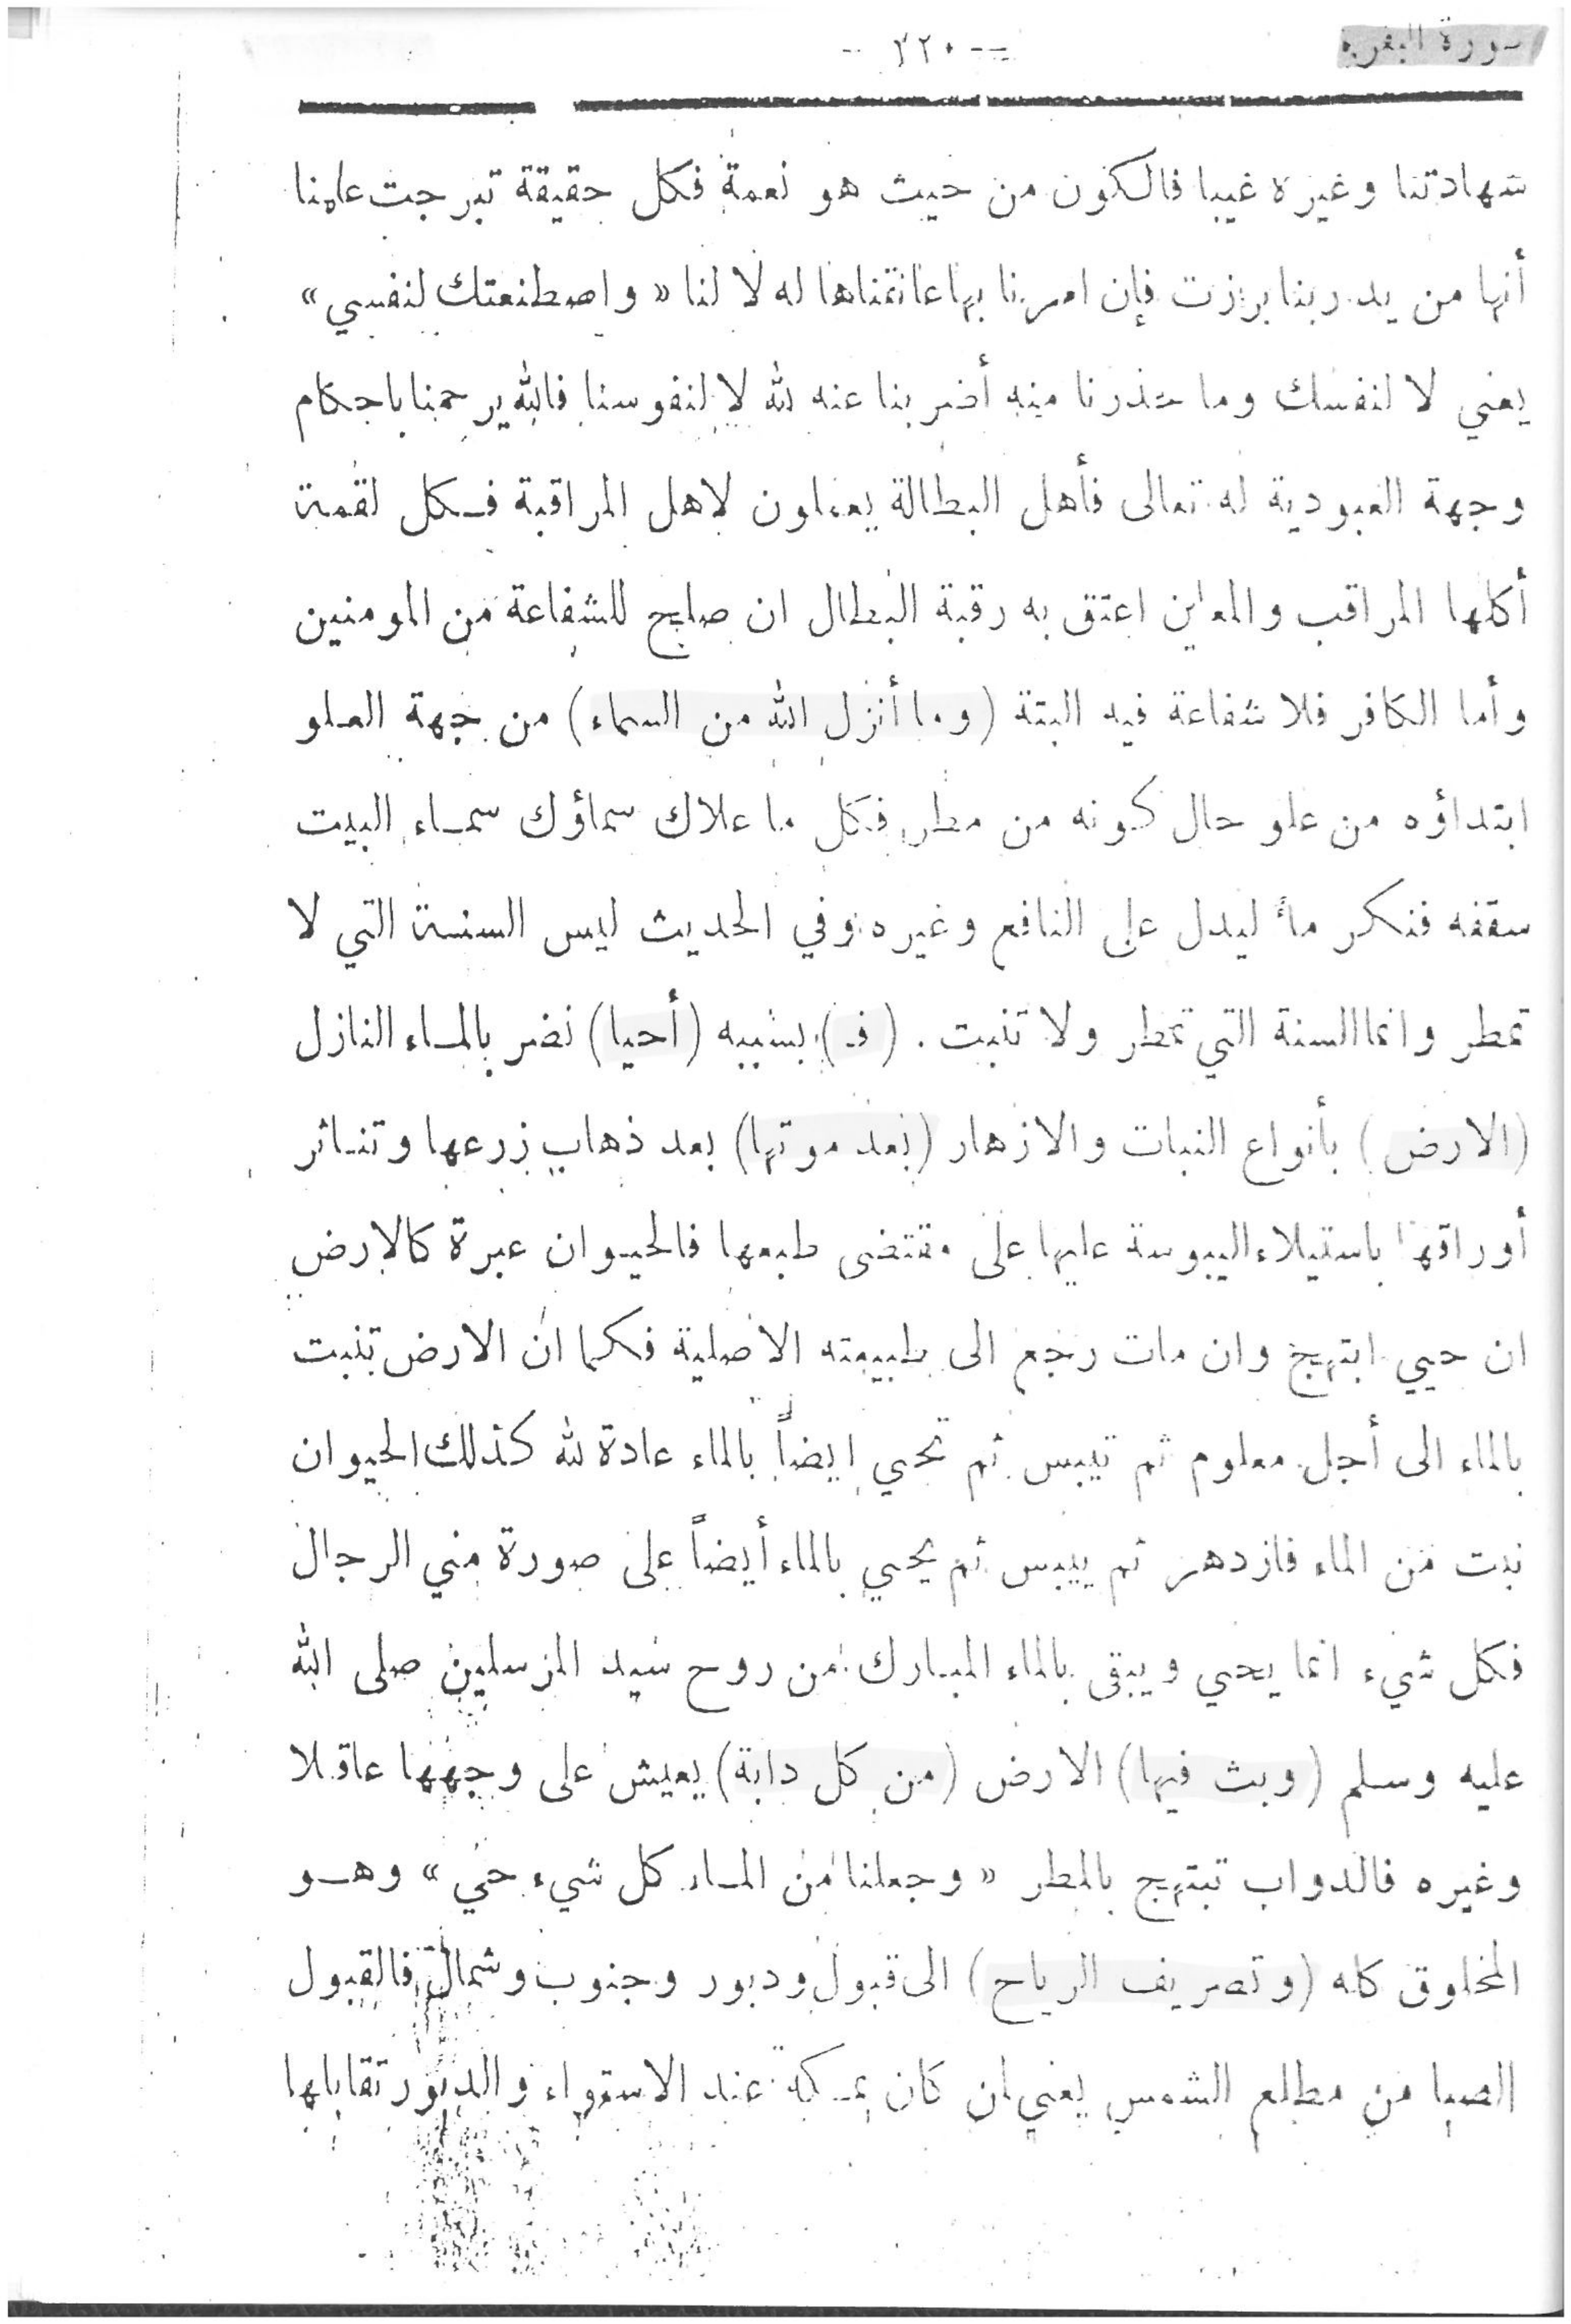 سورة البقرة
- ٢٢٠ -
شهادتنا وغيره غيبا فالكون من حيث هو نعمة فكل حقيقة تبرجت علمنا
أنها من يد ربنا برزت فإن امرنا بها عانقناها له لا لنا « واصطنعتك لنفسي »
يعني لا لنفسك وما حذرنا منه أضربنا عنه لله لا لنفوسنا فالله يرحمنا باحكام
وجهة العبودية له تعالى فأهل البطالة يعملون لاهل المراقبة فكل لقمة
أكلها المراقب والمعاين اعتق به رقبة البطال ان صلح للشفاعة من المومنين
وأما الكافر فلا شفاعة فيه البتة (وما أنزل الله من السماء) من جهة العلو
ابتداؤه من علو حال كونه من مطر فكل ما علاك سماؤك سماء البيت
سقفه فنكر مأ ليدل على النافع وغيره وفي الحديث ليس السنة التي لا
تمطر وانما السنة التي تمطر ولا تنبت . (فـ) بسببه (أحيا) نضر بالماء النازل
(الارض) بأنواع النبات والازهار (بعد موتها) بعد ذهاب زرعها وتناثر
أوراقها باستيلاء اليبوسة عليها على مقتضى طبعها فالحيوان عبرة كالارض
ان حيي ابتهج وان مات رجع الى طبيعته الاصلية فكما ان الارض تنبت
بالماء الى أجل معلوم ثم تيبس ثم تحيي ايضاً بالماء عادة لله كذلك الحيوان
نبت من الماء فازدهر ثم ييبس ثم يحيي بالماء أيضاً على صورة مني الرجال
فكل شيء انما يحيي ويبقى بالماء المبارك من روح سيد المرسلين صلى الله
عليه وسلم (وبث فيها) الارض (من كل دابة) يعيش على وجهها عاقلا
وغيره فالدواب تبتهج بالمطر « وجعلنا من الماء كل شيء حي » وهو
المخلوق كله (وتصريف الرياح) الى قبول ودبور وجنوب وشمال فالقبول
الصبا من مطلع الشمس يعني ان كان بمكة عند الاستواء والدبور تقابلها